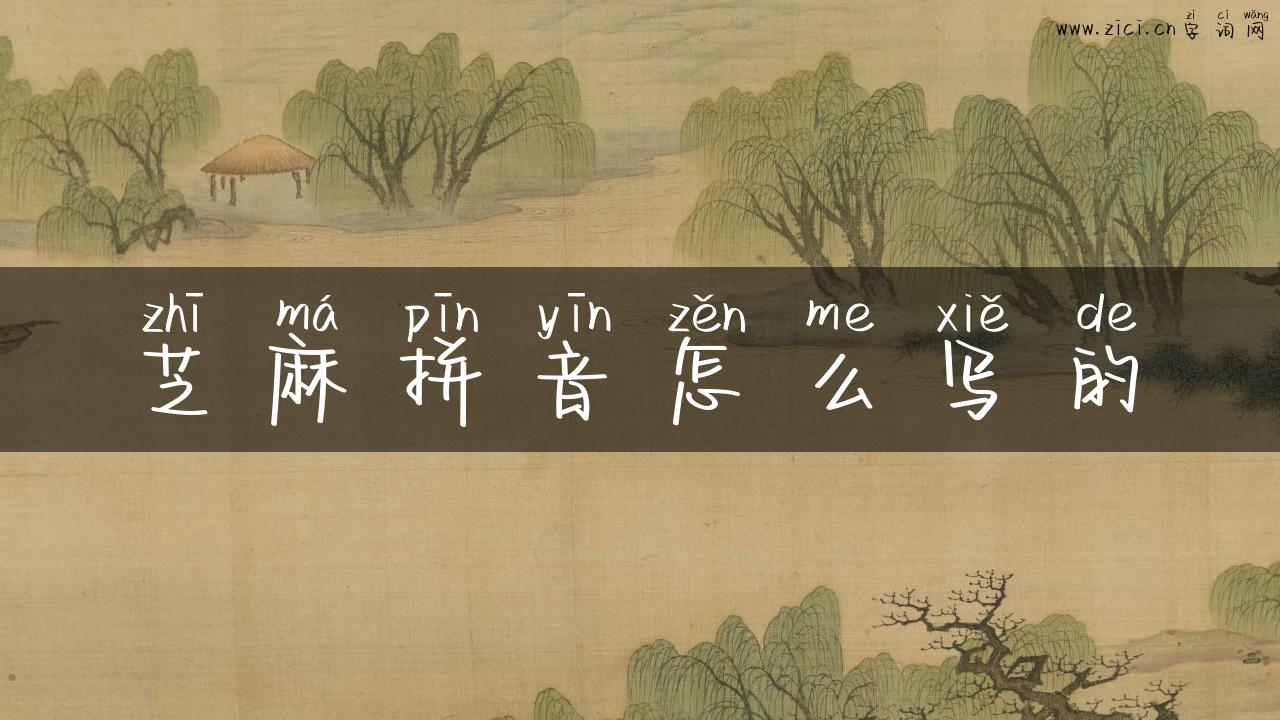 zì cí wǎng
www.zici.cn 字 词 网
zhī má pīn yīn zěn me xiě de
芝 麻 拼 音 怎 么 写 的